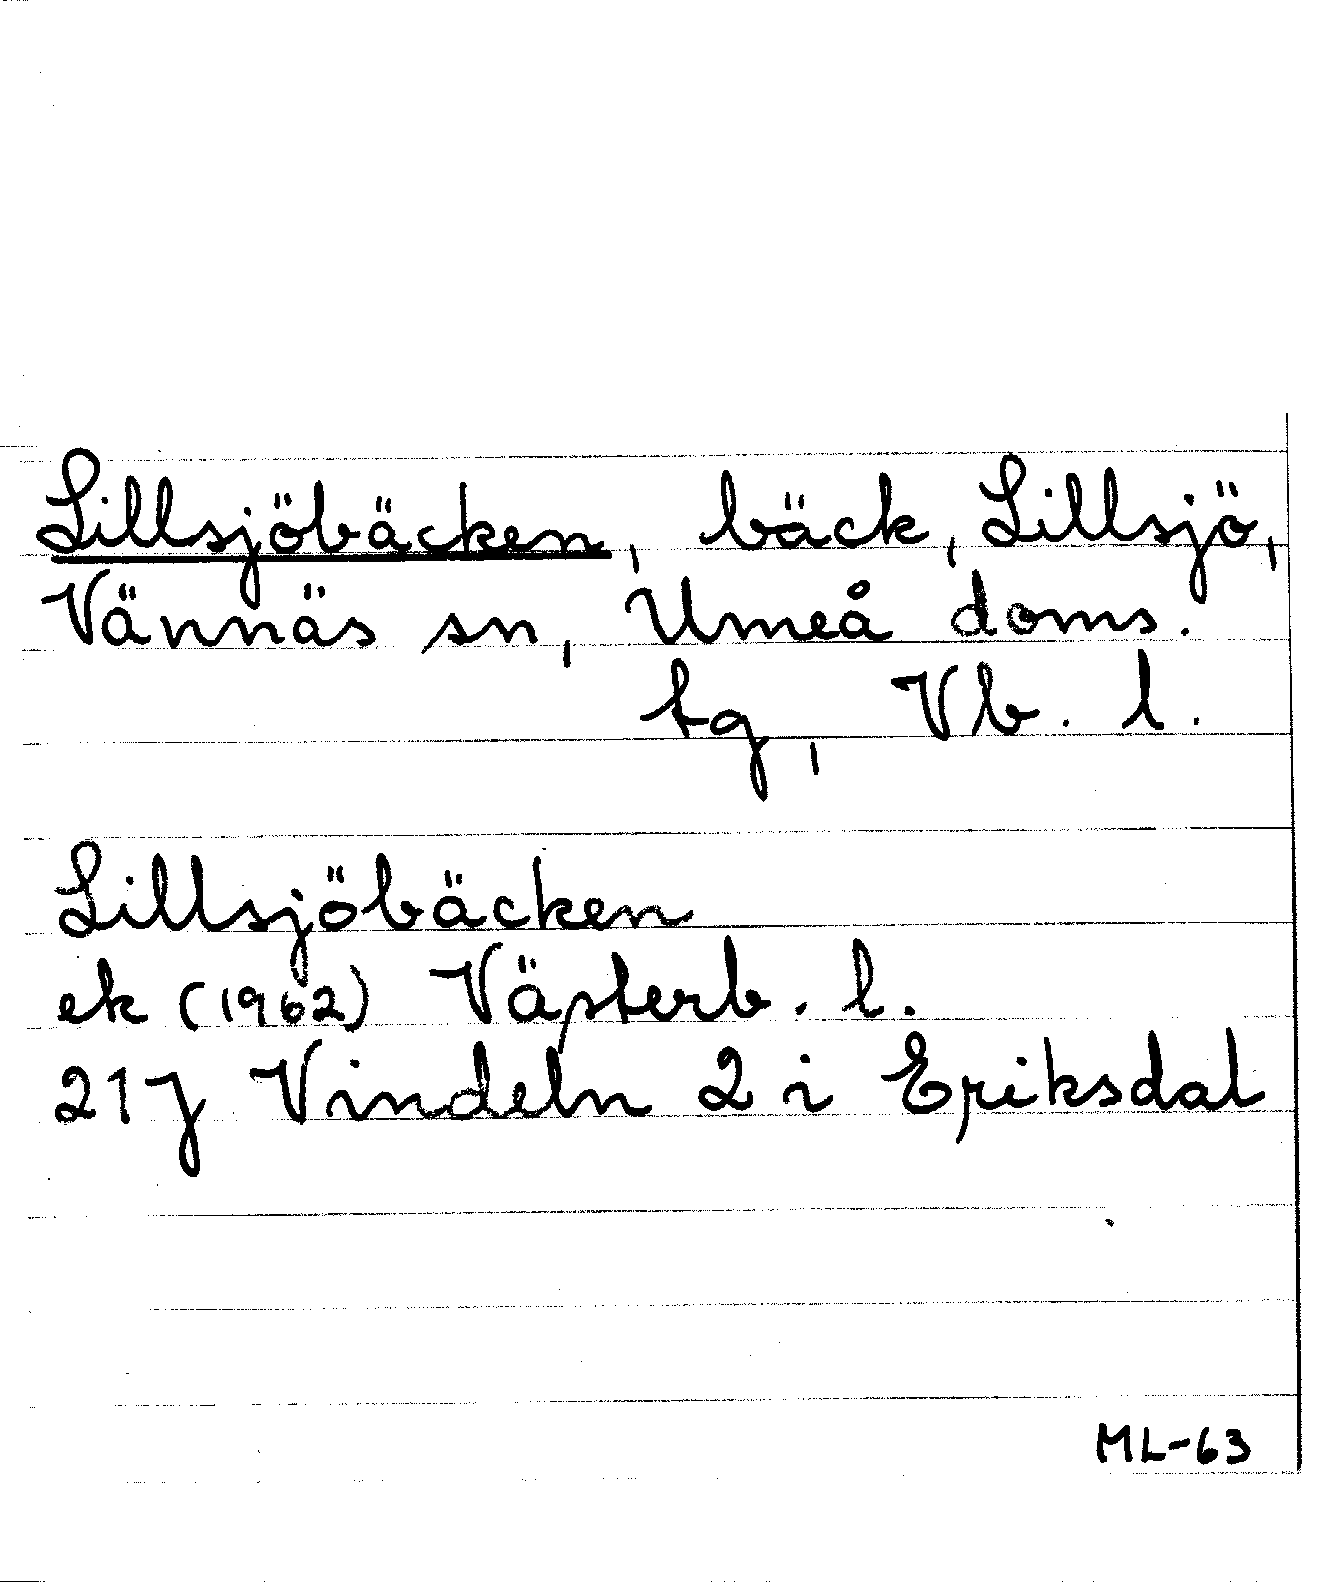 Lillsjöbäcken, bäck, Lillsjö,
Vännäs sn, Umeå doms.
tg, Vb. l.
Lillsjöbäcken
ek (1962) Västerb. l.
21J Vindeln 2 i Eriksdal
ML-63